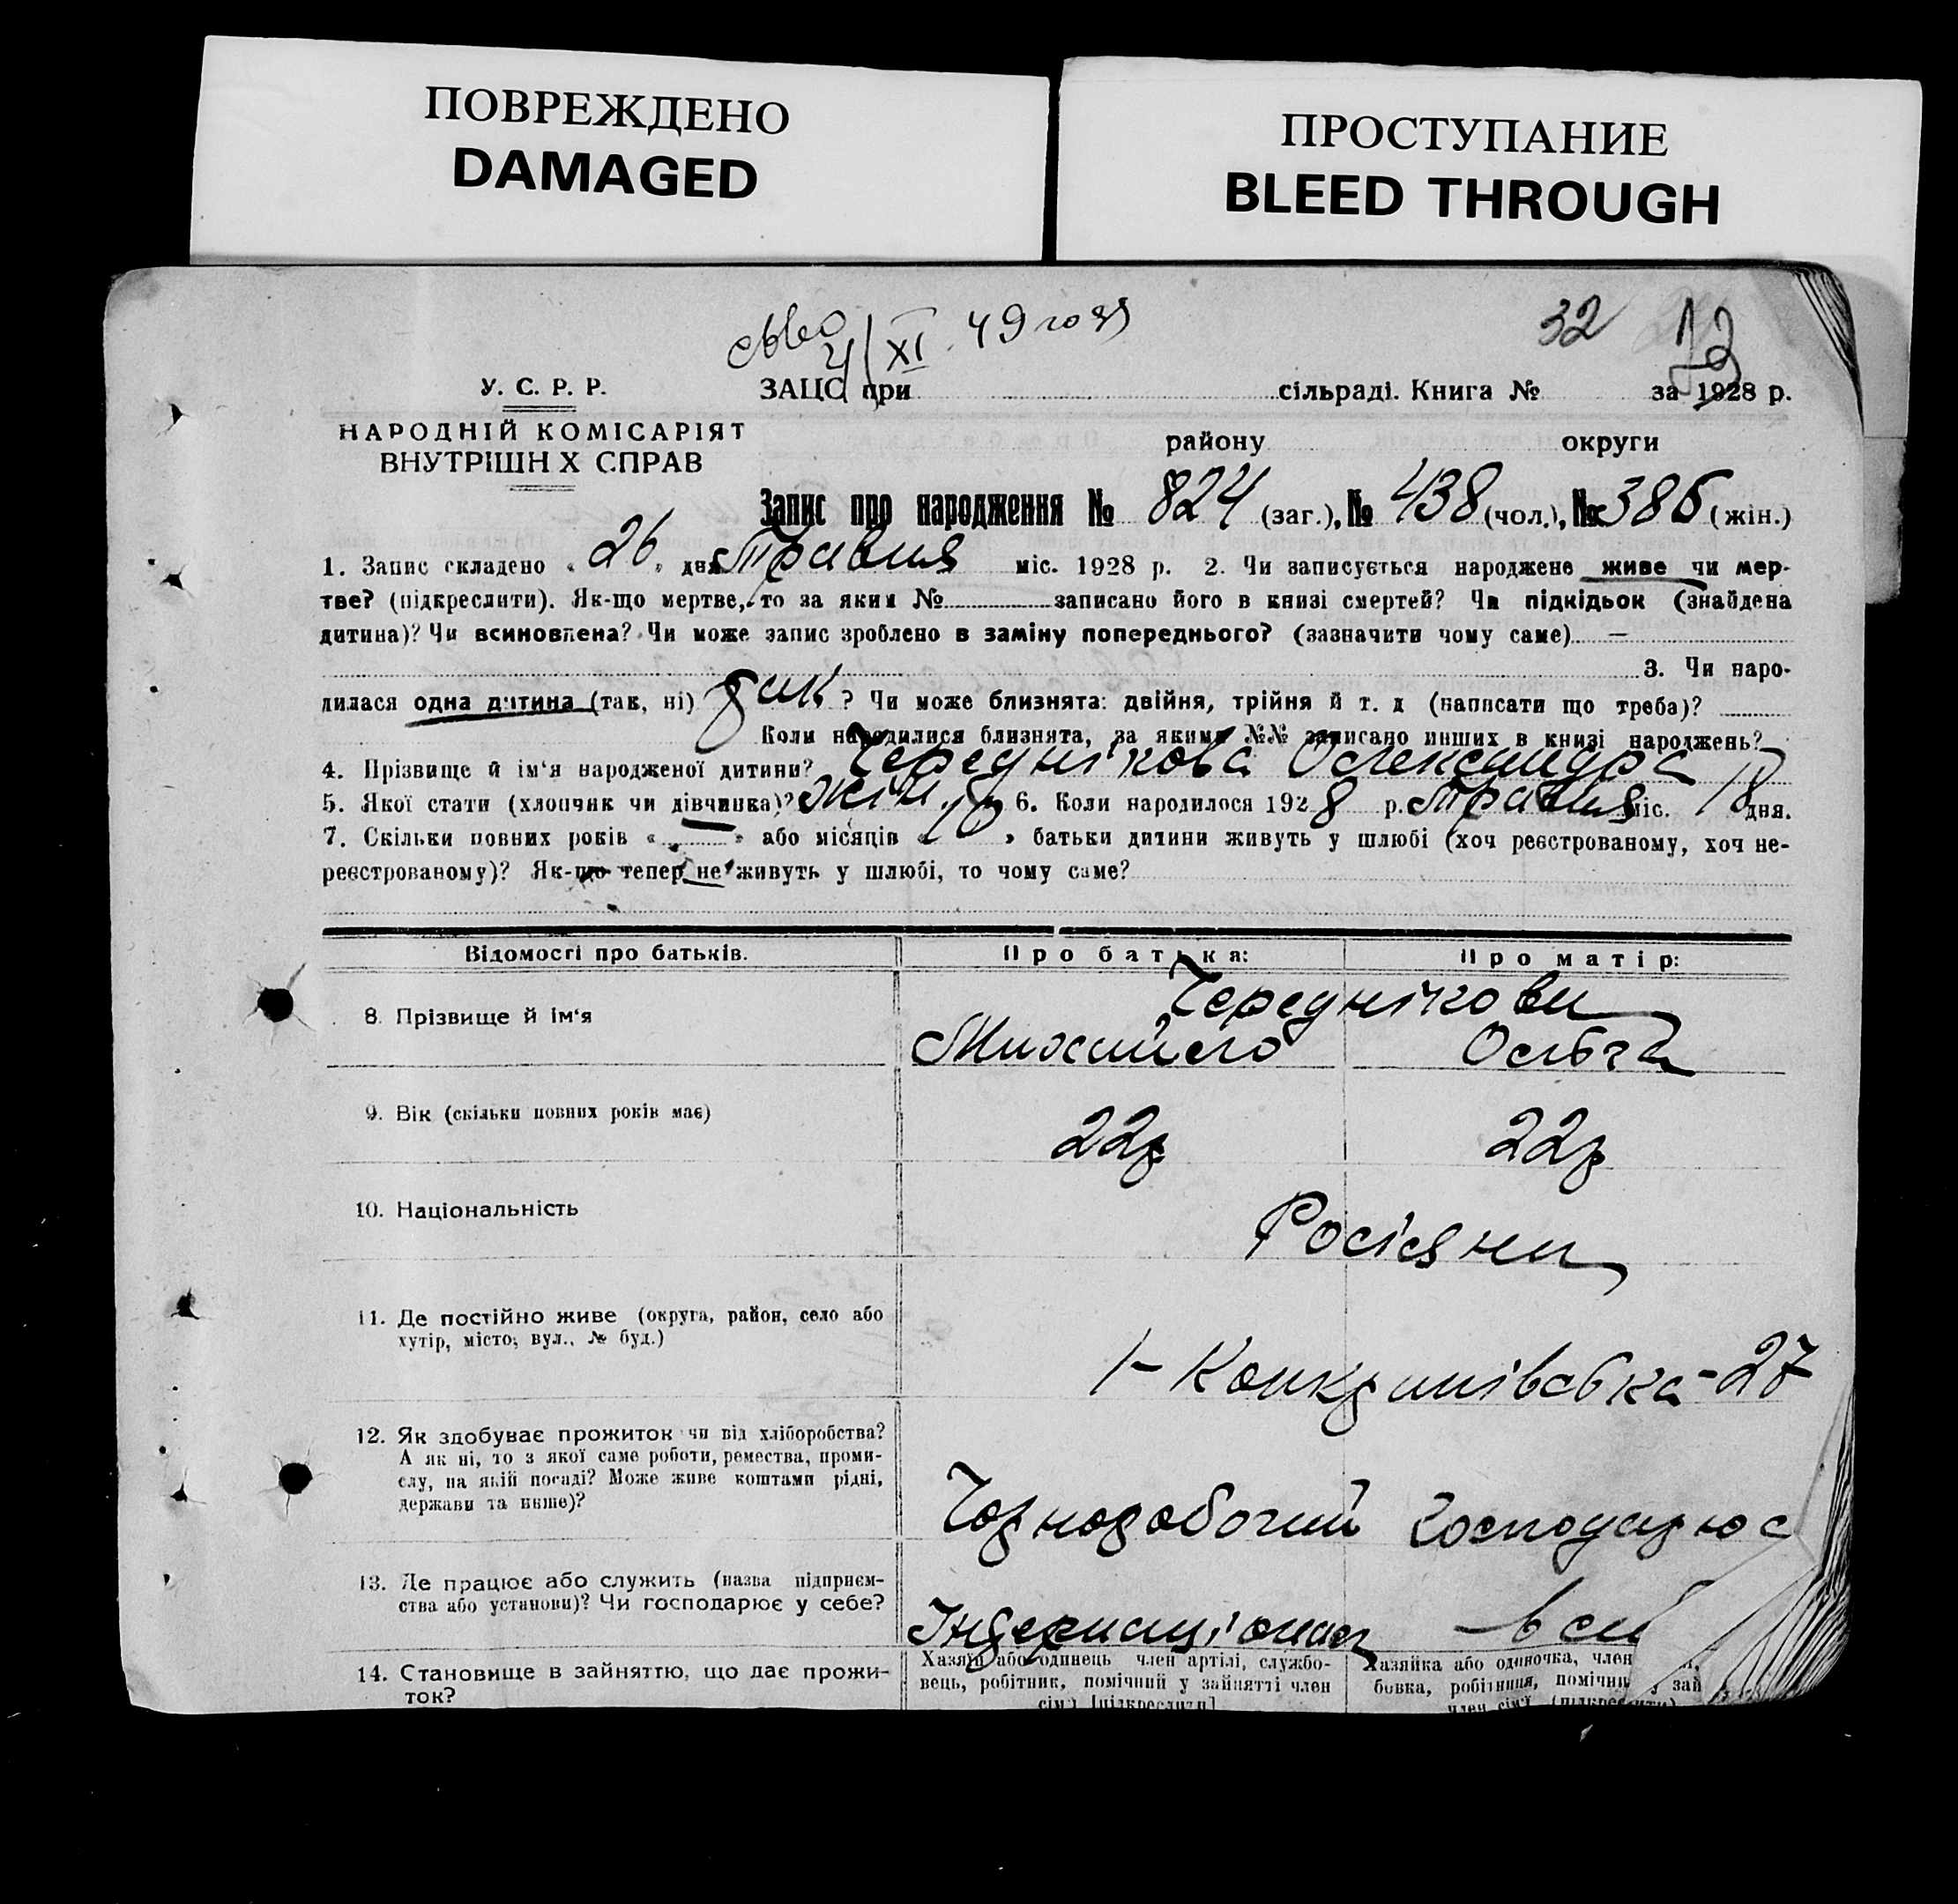 ПОВРЕЖДЕНО
DAMAGED
ПРОСТУПАНИЕ
BLEED THROUGH
4/XI 49 года
32
У. С. Р. Р.
ЗАЦС при сільраді. Книга № за 1928 р.
НАРОДНІЙ КОМІСАРІЯТ
ВНУТРІШН Х СПРАВ
району округи
Запис про народження № 824 (заг.), № 438 (чол.), № 386 (жін.)
1. Запис складено „26" дня Травня міс. 1928 р. 2. Чи записується народжене живе чи мер-
тве? (підкреслити). Як-що мертве, то за яким № записано його в книзі смертей? Чи підкідьок (знайдена
дитина)? Чи всиновлена? Чи може запис зроблено в заміну попереднього? (зазначити чому саме) —
3. Чи наро-
дилася одна дитина (так, ні) так ? Чи може близнята: двійня, трійня й т. д (написати що треба)?
Коли народилися близнята, за якими №№ записано инших в книзі народжень?
4. Прізвище й ім'я народженої дитини? Череднікова Олександра
5. Якої стати (хлопчик чи дівчинка)? жін. 6. Коли народилося 1928 р. Травня міс. 18 дня.
7. Скільки повних років « — » або місяців « » батьки дитини живуть у шлюбі (хоч реєстрованому, хоч не-
реєстрованому)? Як-що тепер не живуть у шлюбі, то чому саме?
Відомості про батьків.
Про батька:
Про матір:
8. Прізвище й ім'я
Череднікови
Михайло
Ольга
9. Вік (скільки повних років має)
22р
22р
10. Національність
Росіяни
11. Де постійно живе (округа, район, село або
хутір, місто, вул., № буд.)
27
12. Як здобуває прожиток чи від хліборобства?
А як ні, то з якої саме роботи, ремества, проми-
слу, на якій посаді? Може живе коштами рідні,
держави та инше)?
Чорноробочий
Господарює
13. Де працює або служить (назва підприєм-
ства або установи)? Чи господарює у себе?
Інтернаціонал
14. Становище в зайняттю, що дає прожи-
ток?
Хазяїн або одинець член артілі, службо-
вець, робітник, помічний у зайнятті член
сім'ї [підкреслити]
Хазяйка або одиночка, член
бовка, робітниця, помічн у зай
член сім'ї (підкреслити)